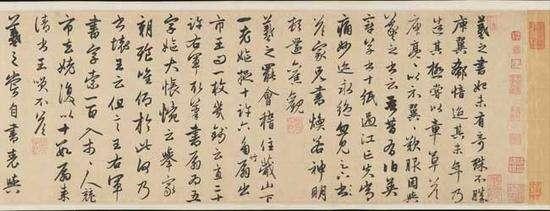 羲之書初未有奇殊不勝
庾翼郗愔迨其末年乃
造其極嘗以章草答
庾亮亮以示翼翼歎服因與
羲之書云吾昔有伯英
章草十紙過江亡失常
痛妙迹永絕忽見足下
答家兄書煥若神明
頓還舊觀
羲之罷會稽住蕺山下
一老嫗捉十許六角扇出
市王問一枚幾錢云直二十
許右軍取筆書扇扇為五
字嫗大悵惋云舉家
朝飱惟仰於此何乃
書壞王云但言王右軍
書字索一百入市人競
市之姥復以十數扇來
請書王笑不答
羲之嘗自書表與